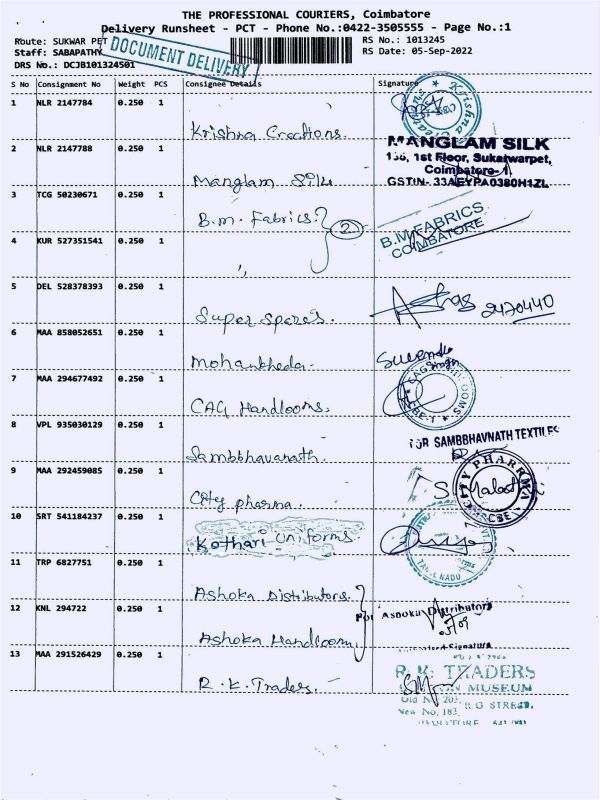 THE PROFESSIONAL COURIERS, Coimbatore
Delivery Runsheet - PCT - Phone No.:0422-3505555 - Page No.:1
Route: SUKWAR PET
RS No.: 1013245
Staff: SABAPATHY
RS Date: 05-Sep-2022
DRS No.: DCJB101324501
DOCUMENT DELIVERY
S No Consignment No Weight PCS Consignee Details Signature
1 NLR 2147784 0.250 1
Krishna Creations
Krishna Creations
2 NLR 2147788 0.250 1
Manglam Silk
MANGLAM SILK
136, 1st Floor, Sukarwarpet,
Coimbatore-1.
GSTIN- 33AEYPA0380H1ZL
3 TCG 50230671 0.250 1
B.M. Fabrics.
2
B.M.FABRICS
COIMBATORE
4 KUR 527351541 0.250 1
"
5 DEL 528378393 0.250 1
Super Spares.
2470440
6 MAA 858052651 0.250 1
Mohankheda.
Surendra
Singh
7 MAA 294677492 0.250 1
CAG Handlooms.
8 VPL 935030129 0.250 1
Sambbhavanath.
FOR SAMBBHAVNATH TEXTILES
9 MAA 292459085 0.250 1
City pharma.
CITY PHARMA
CBE
10 SRT 541184237 0.250 1
Kothari Uniforms
TAMIL NADU
11 TRP 6827751 0.250 1
Ashoka Distributors.
12 KNL 294722 0.250 1
For Ashoka Distributors
05/09
Ashoka Handloom
Authorised Signature
13 MAA 291526429 0.250 1
R.K. Traders.
R. K. TRADERS
MUSEUM
Old No. 203,
New No. 183, R.G STREET,
COIMBATORE - 641 001